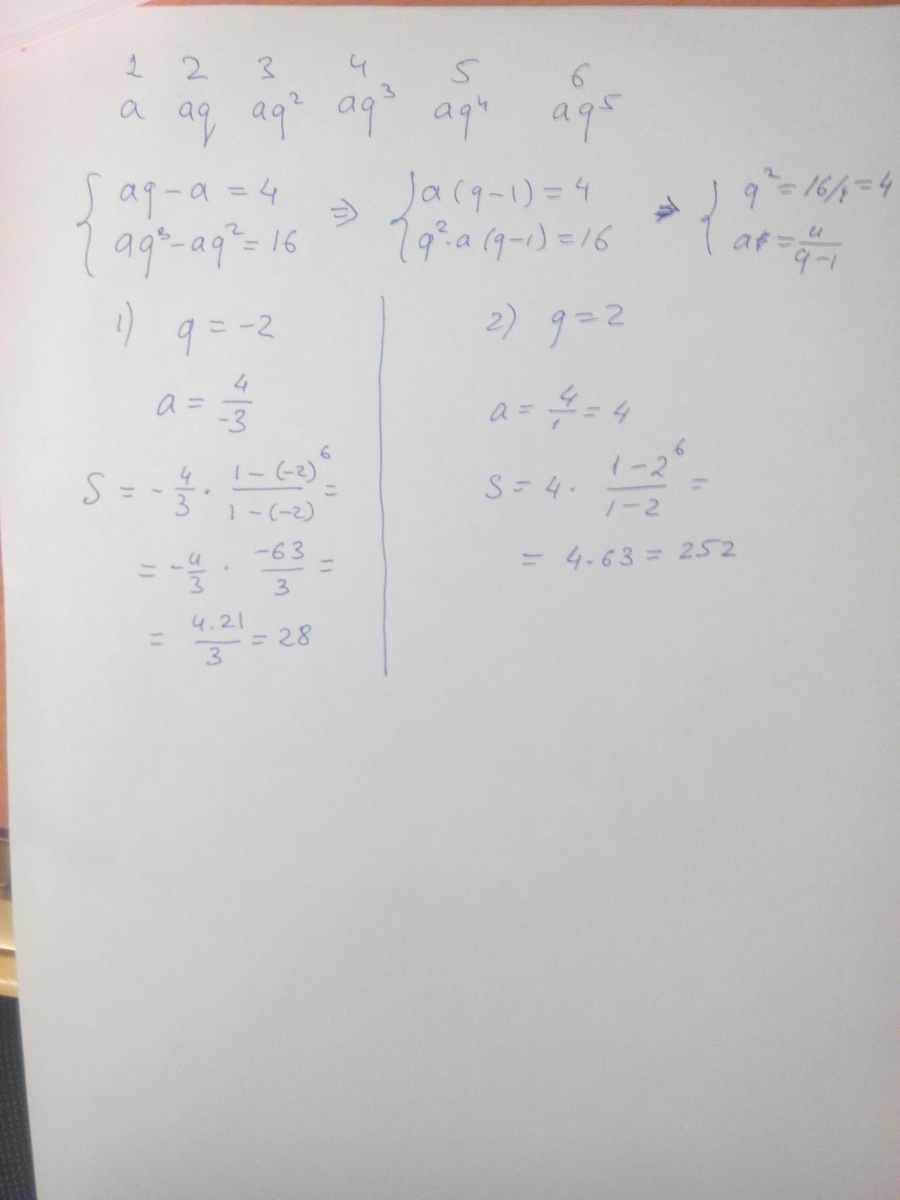 1 2 3 4 5 6
a aq aq² aq³ aq⁴ aq⁵
{ aq - a = 4 ⇒ { a(q-1) = 4 ⇒ { q² = 16/4 = 4
aq³ - aq² = 16 q²·a(q-1) = 16 a = 4/(q-1)
1) q = -2
a = 4/-3
S = - 4/3 · (1-(-2)⁶)/(1-(-2)) =
= - 4/3 · -63/3 =
= 4·21/3 = 28
2) q = 2
a = 4/1 = 4
S = 4 · (1-2⁶)/(1-2) =
= 4·63 = 252